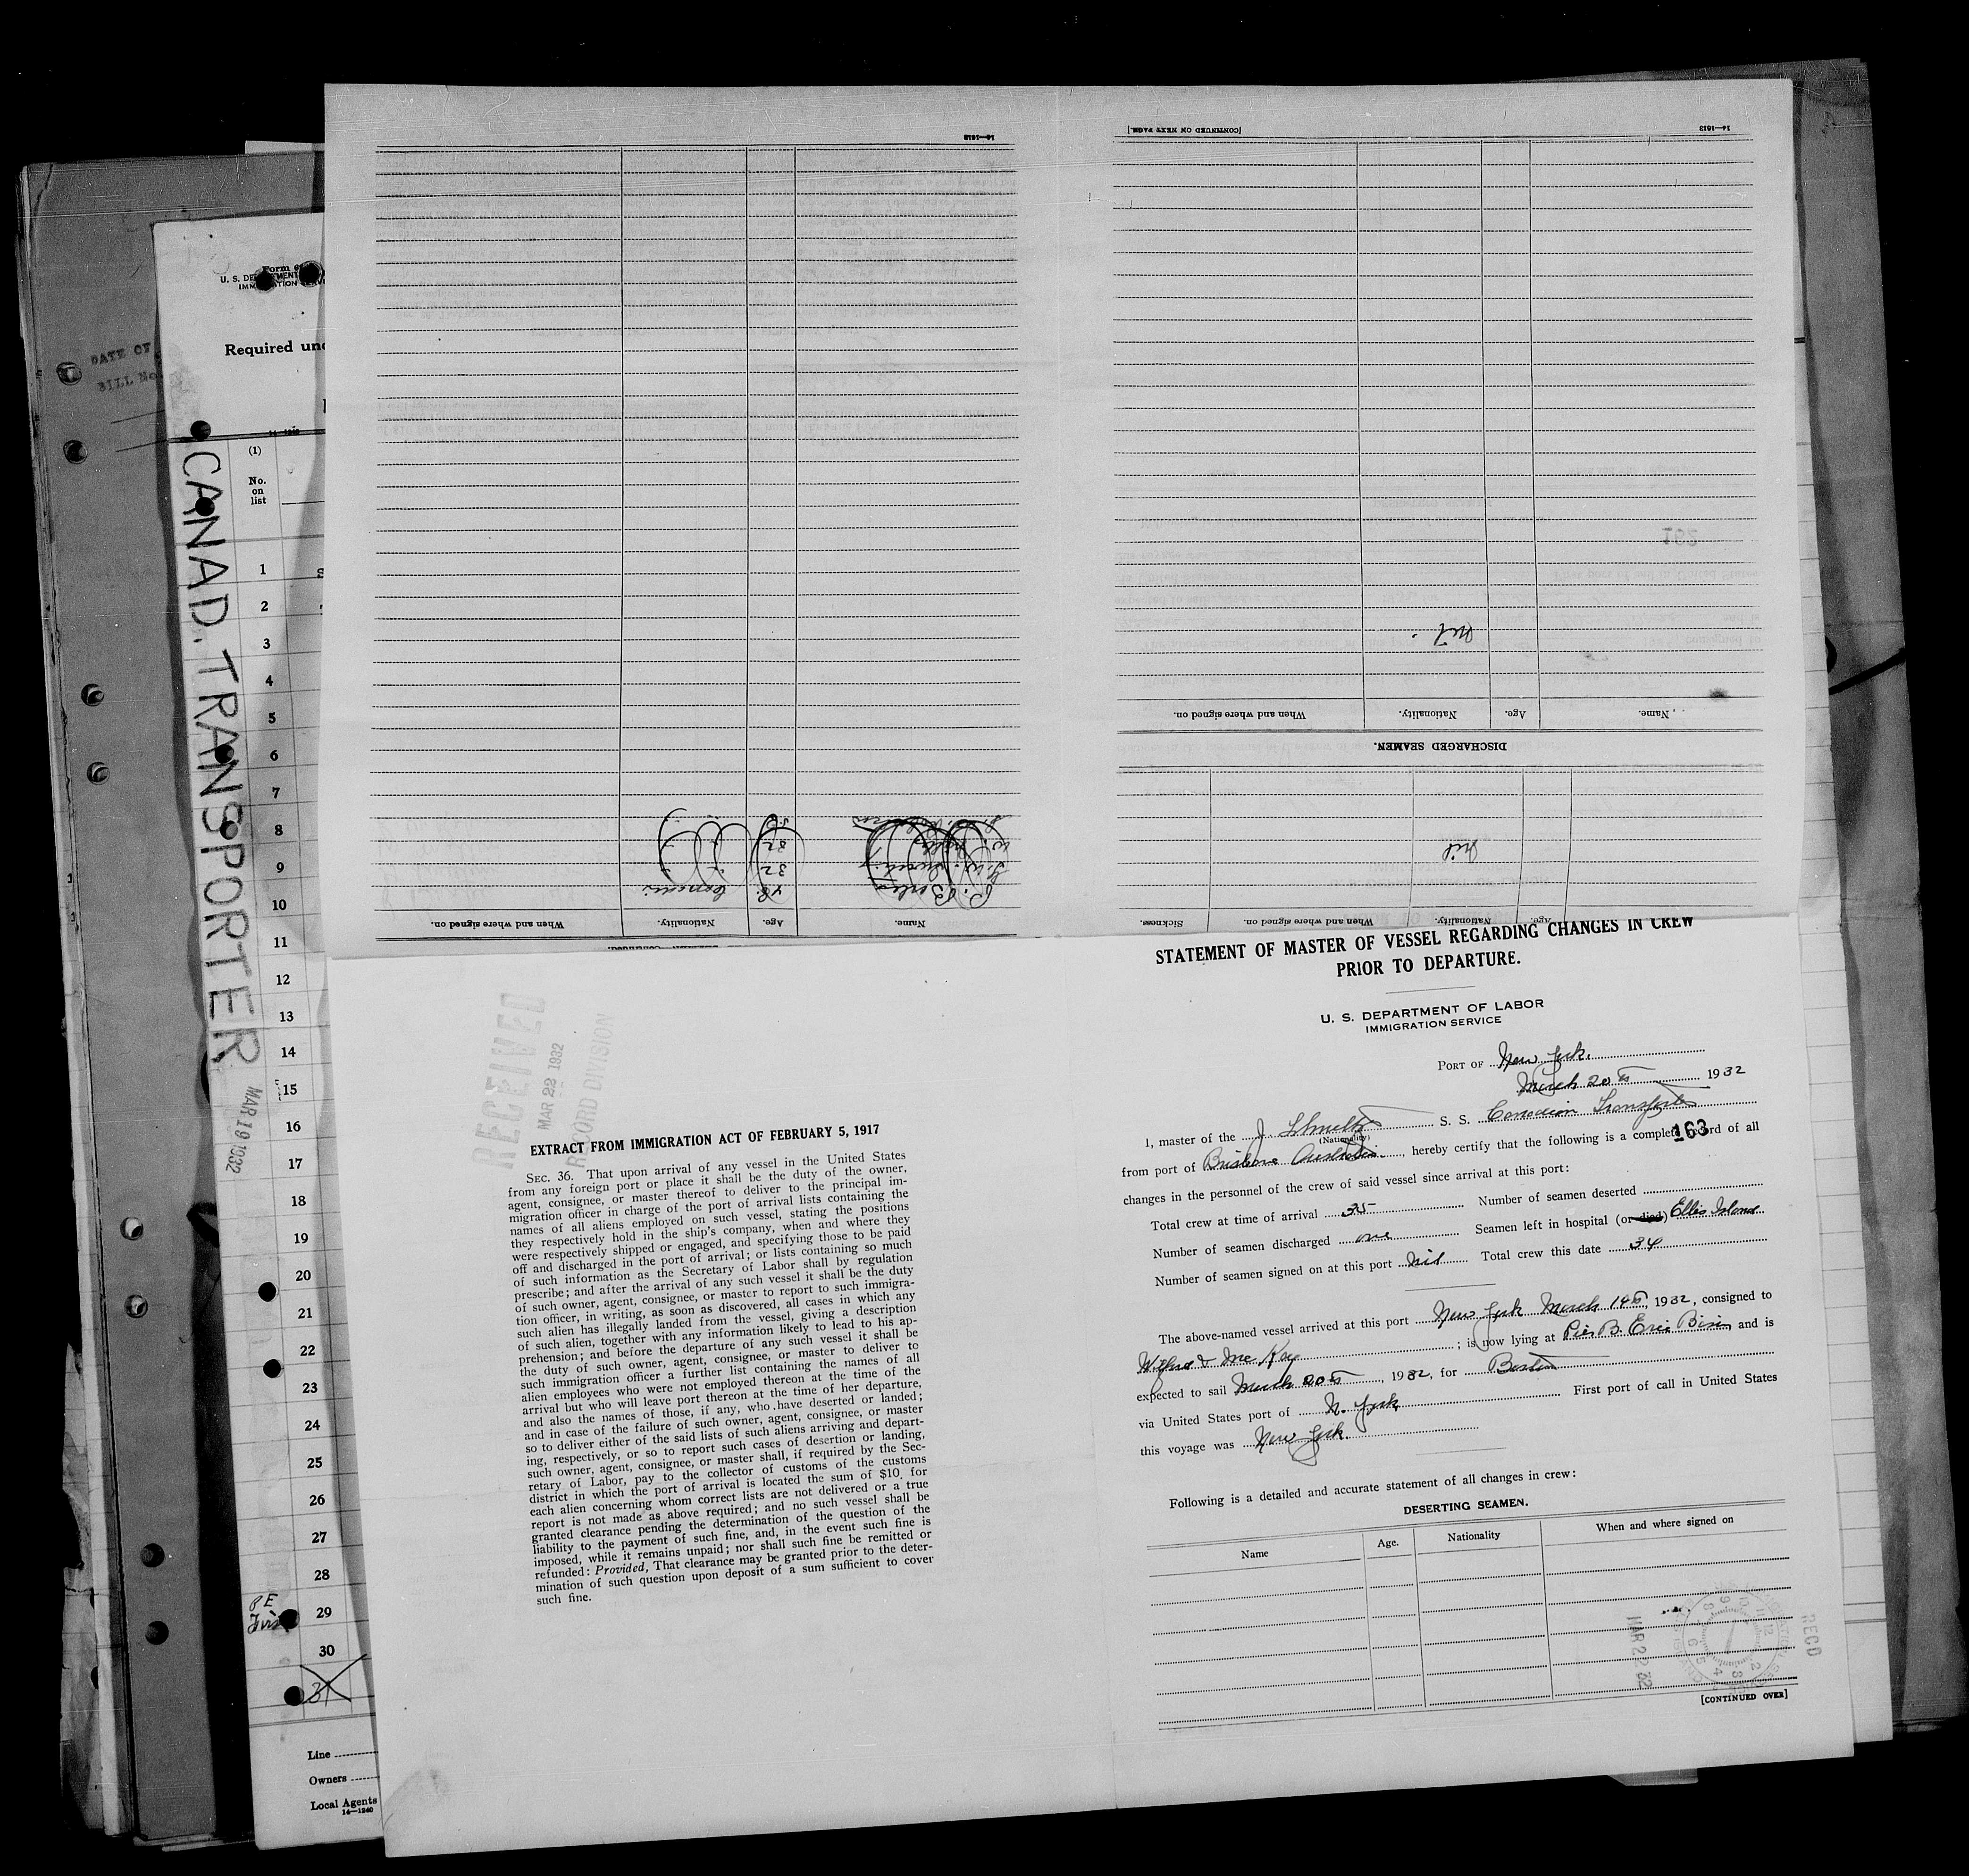 14—1613
[CONTINUED ON NEXT PAGE.]
14—1613
Form
U. S. DEPARTMENT
IMMIGRATION SERVICE
Required und
DATE OF
BILL No.
(1)
No.
on
list
1
2
3
4
5
6
7
8
9
10
11
12
13
14
15
16
17
18
19
20
21
22
23
24
25
26
27
28
29
30
31
CANAD. TRANSPORTER
MAR 19 1932
P E
Line
Owners
Local Agents
14—1240
162
Nil.
Name. Age. Nationality. When and where signed on.
DISCHARGED SEAMEN.
Nil
Age. Nationality. When and where signed on. Sickness.
50
32
32
48
Name. Age. Nationality. When and where signed on.
RECEIVED
MAR 22 1932
RECORD DIVISION
EXTRACT FROM IMMIGRATION ACT OF FEBRUARY 5, 1917
SEC. 36. That upon arrival of any vessel in the United States
from any foreign port or place it shall be the duty of the owner,
agent, consignee, or master thereof to deliver to the principal im-
migration officer in charge of the port of arrival lists containing the
names of all aliens employed on such vessel, stating the positions
they respectively hold in the ship's company, when and where they
were respectively shipped or engaged, and specifying those to be paid
off and discharged in the port of arrival; or lists containing so much
of such information as the Secretary of Labor shall by regulation
prescribe; and after the arrival of any such vessel it shall be the duty
of such owner, agent, consignee, or master to report to such immigra-
tion officer, in writing, as soon as discovered, all cases in which any
such alien has illegally landed from the vessel, giving a description
of such alien, together with any information likely to lead to his ap-
prehension; and before the departure of any such vessel it shall be
the duty of such owner, agent, consignee, or master to deliver to
such immigration officer a further list containing the names of all
alien employees who were not employed thereon at the time of the
arrival but who will leave port thereon at the time of her departure,
and also the names of those, if any, who have deserted or landed;
and in case of the failure of such owner, agent, consignee, or master
so to deliver either of the said lists of such aliens arriving and depart-
ing, respectively, or so to report such cases of desertion or landing,
such owner, agent, consignee, or master shall, if required by the Sec-
retary of Labor, pay to the collector of customs of the customs
district in which the port of arrival is located the sum of $10. for
each alien concerning whom correct lists are not delivered or a true
report is not made as above required; and no such vessel shall be
granted clearance pending the determination of the question of the
liability to the payment of such fine, and, in the event such fine is
imposed, while it remains unpaid; nor shall such fine be remitted or
refunded: Provided, That clearance may be granted prior to the deter-
mination of such question upon deposit of a sum sufficient to cover
such fine.
STATEMENT OF MASTER OF VESSEL REGARDING CHANGES IN CREW
PRIOR TO DEPARTURE.
U. S. DEPARTMENT OF LABOR
IMMIGRATION SERVICE
PORT OF New York.
March 20th 1932
I, master of the J. Shmeltz S. S. Canadian Transporter
(Nationality)
163
from port of Brisbane Australia, hereby certify that the following is a complete record of all
changes in the personnel of the crew of said vessel since arrival at this port:
Total crew at time of arrival 35 Number of seamen deserted
Number of seamen discharged one Seamen left in hospital (or died) Ellis Island
Number of seamen signed on at this port Nil Total crew this date 34
The above-named vessel arrived at this port New York March 19th, 1932, consigned to
; is now lying at Pier B. Erie Basin, and is
expected to sail March 20th, 1932, for Boston
via United States port of N. York First port of call in United States
this voyage was New York.
Following is a detailed and accurate statement of all changes in crew:
DESERTING SEAMEN.
Name Age. Nationality When and where signed on
MAR 22 32
RECD
[CONTINUED OVER]